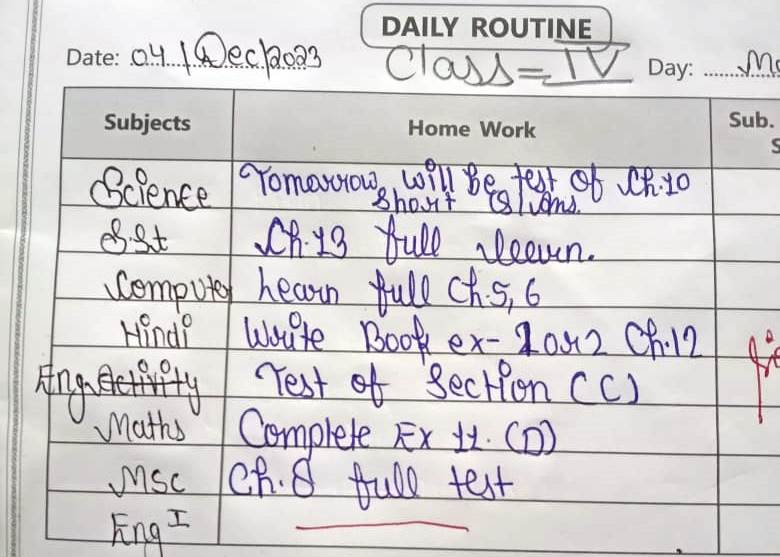 DAILY ROUTINE
Date: 04/Dec/2023 Class = IV Day: Mo
Subjects Home Work Sub.
S
Science Tomorrow will be test of Ch.10
Short Q/Ans.
S.St Ch.13 full learn.
Computer learn full Ch.5, 6
Hindi Write Book ex- 1 or 2 Ch.12
Eng Activity Test of Section (C)
Maths Complete Ex 11. (D)
MSC Ch.8 full test
Eng I